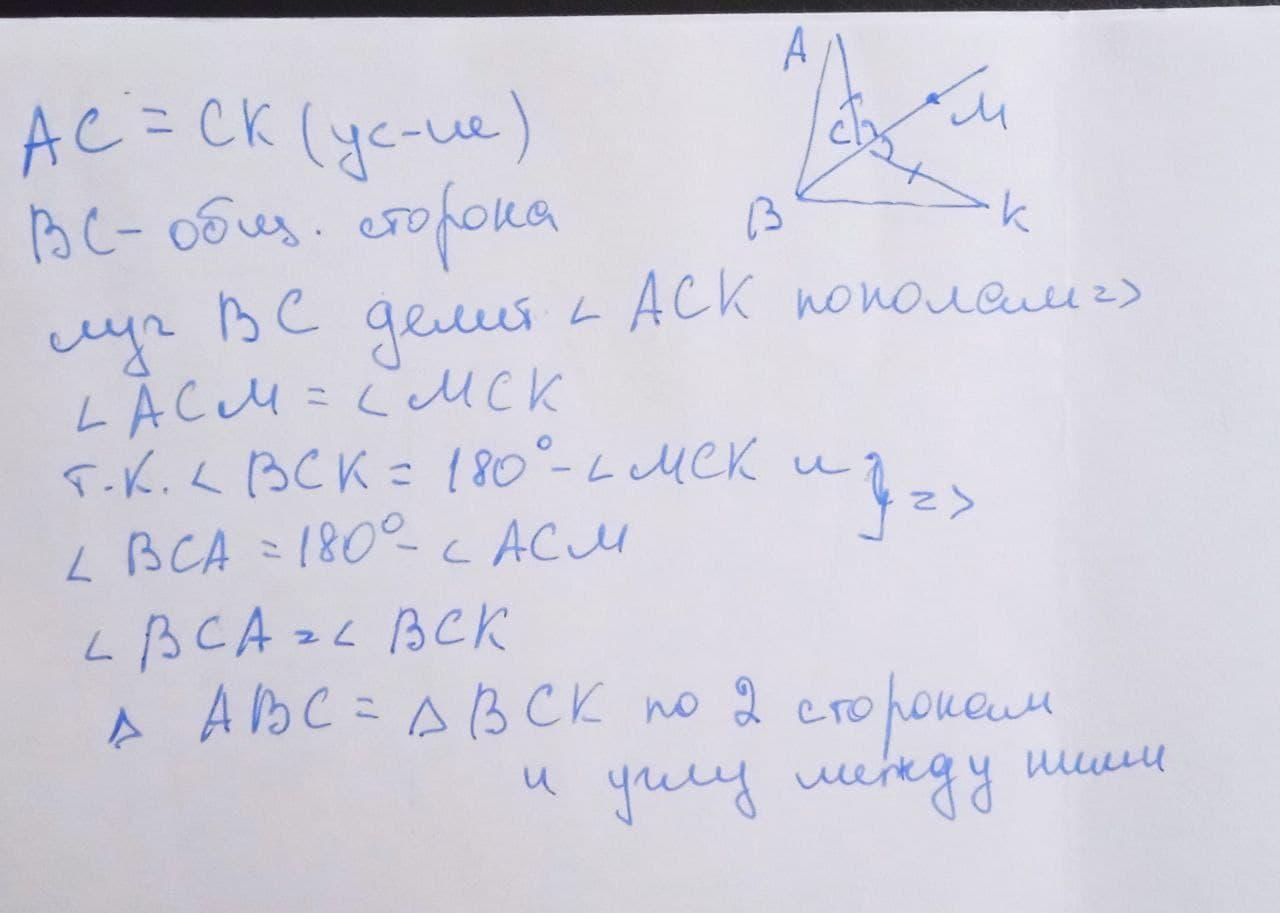 AC = CK (ус-ие)
BC - общ. сторона
луч BC делит ∠ ACK пополам =>
∠ ACM = ∠ MCK
т.к. ∠ BCK = 180° - ∠ MCK и } =>
∠ BCA = 180° - ∠ ACM
∠ BCA = ∠ BCK
Δ ABC = Δ BCK по 2 сторонам
и углу между ними
A
C
M
B
K